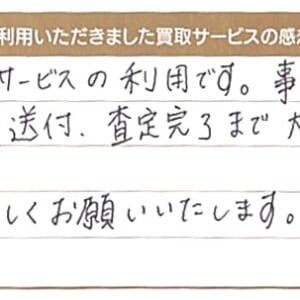 利用いただきました買取サービスの感
サービスの利用です。事
送付、査定完了まで
しくお願いいたします。